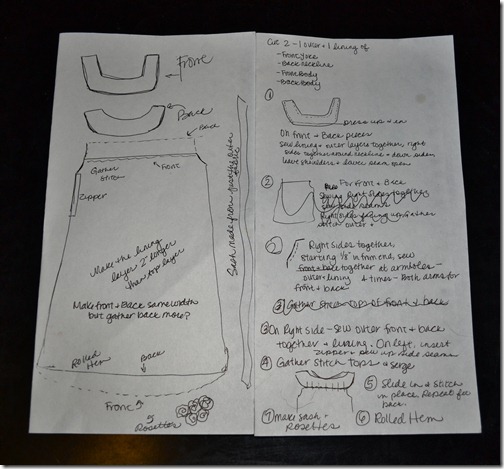 Front
Back
Back
Gather
Stitch
Front
Zipper
Make the lining
layer 2" longer
than top layer
Make front + Back same width
but gather back more?
Rolled
Hem
Back
Front
Rosettes
Sash made from
Cut 2 - 1 outer + 1 lining of
- Front Yoke
- Back neckline
- Front Body
- Back Body
①
press up + in
On front + Back pieces
Sew lining + outer layers together, right
sides together around neckline + down sides,
leave shoulders + lower seam open
②
For Front + Back
Right sides together,
Starting 1/8" in from end, sew
front + back together at armholes -
outer + lining 4 times - Both arms for
front + back
③ Gather stitch tops of front + back
③ On Right side - Sew outer front + back
together + lining. On left, insert
zipper + sew up side seams
④ Gather Stitch Tops + serge
⑤ Slide in + stitch
in place. Repeat for
back.
⑦ Make sash +
Rosettes
⑥ Rolled Hem